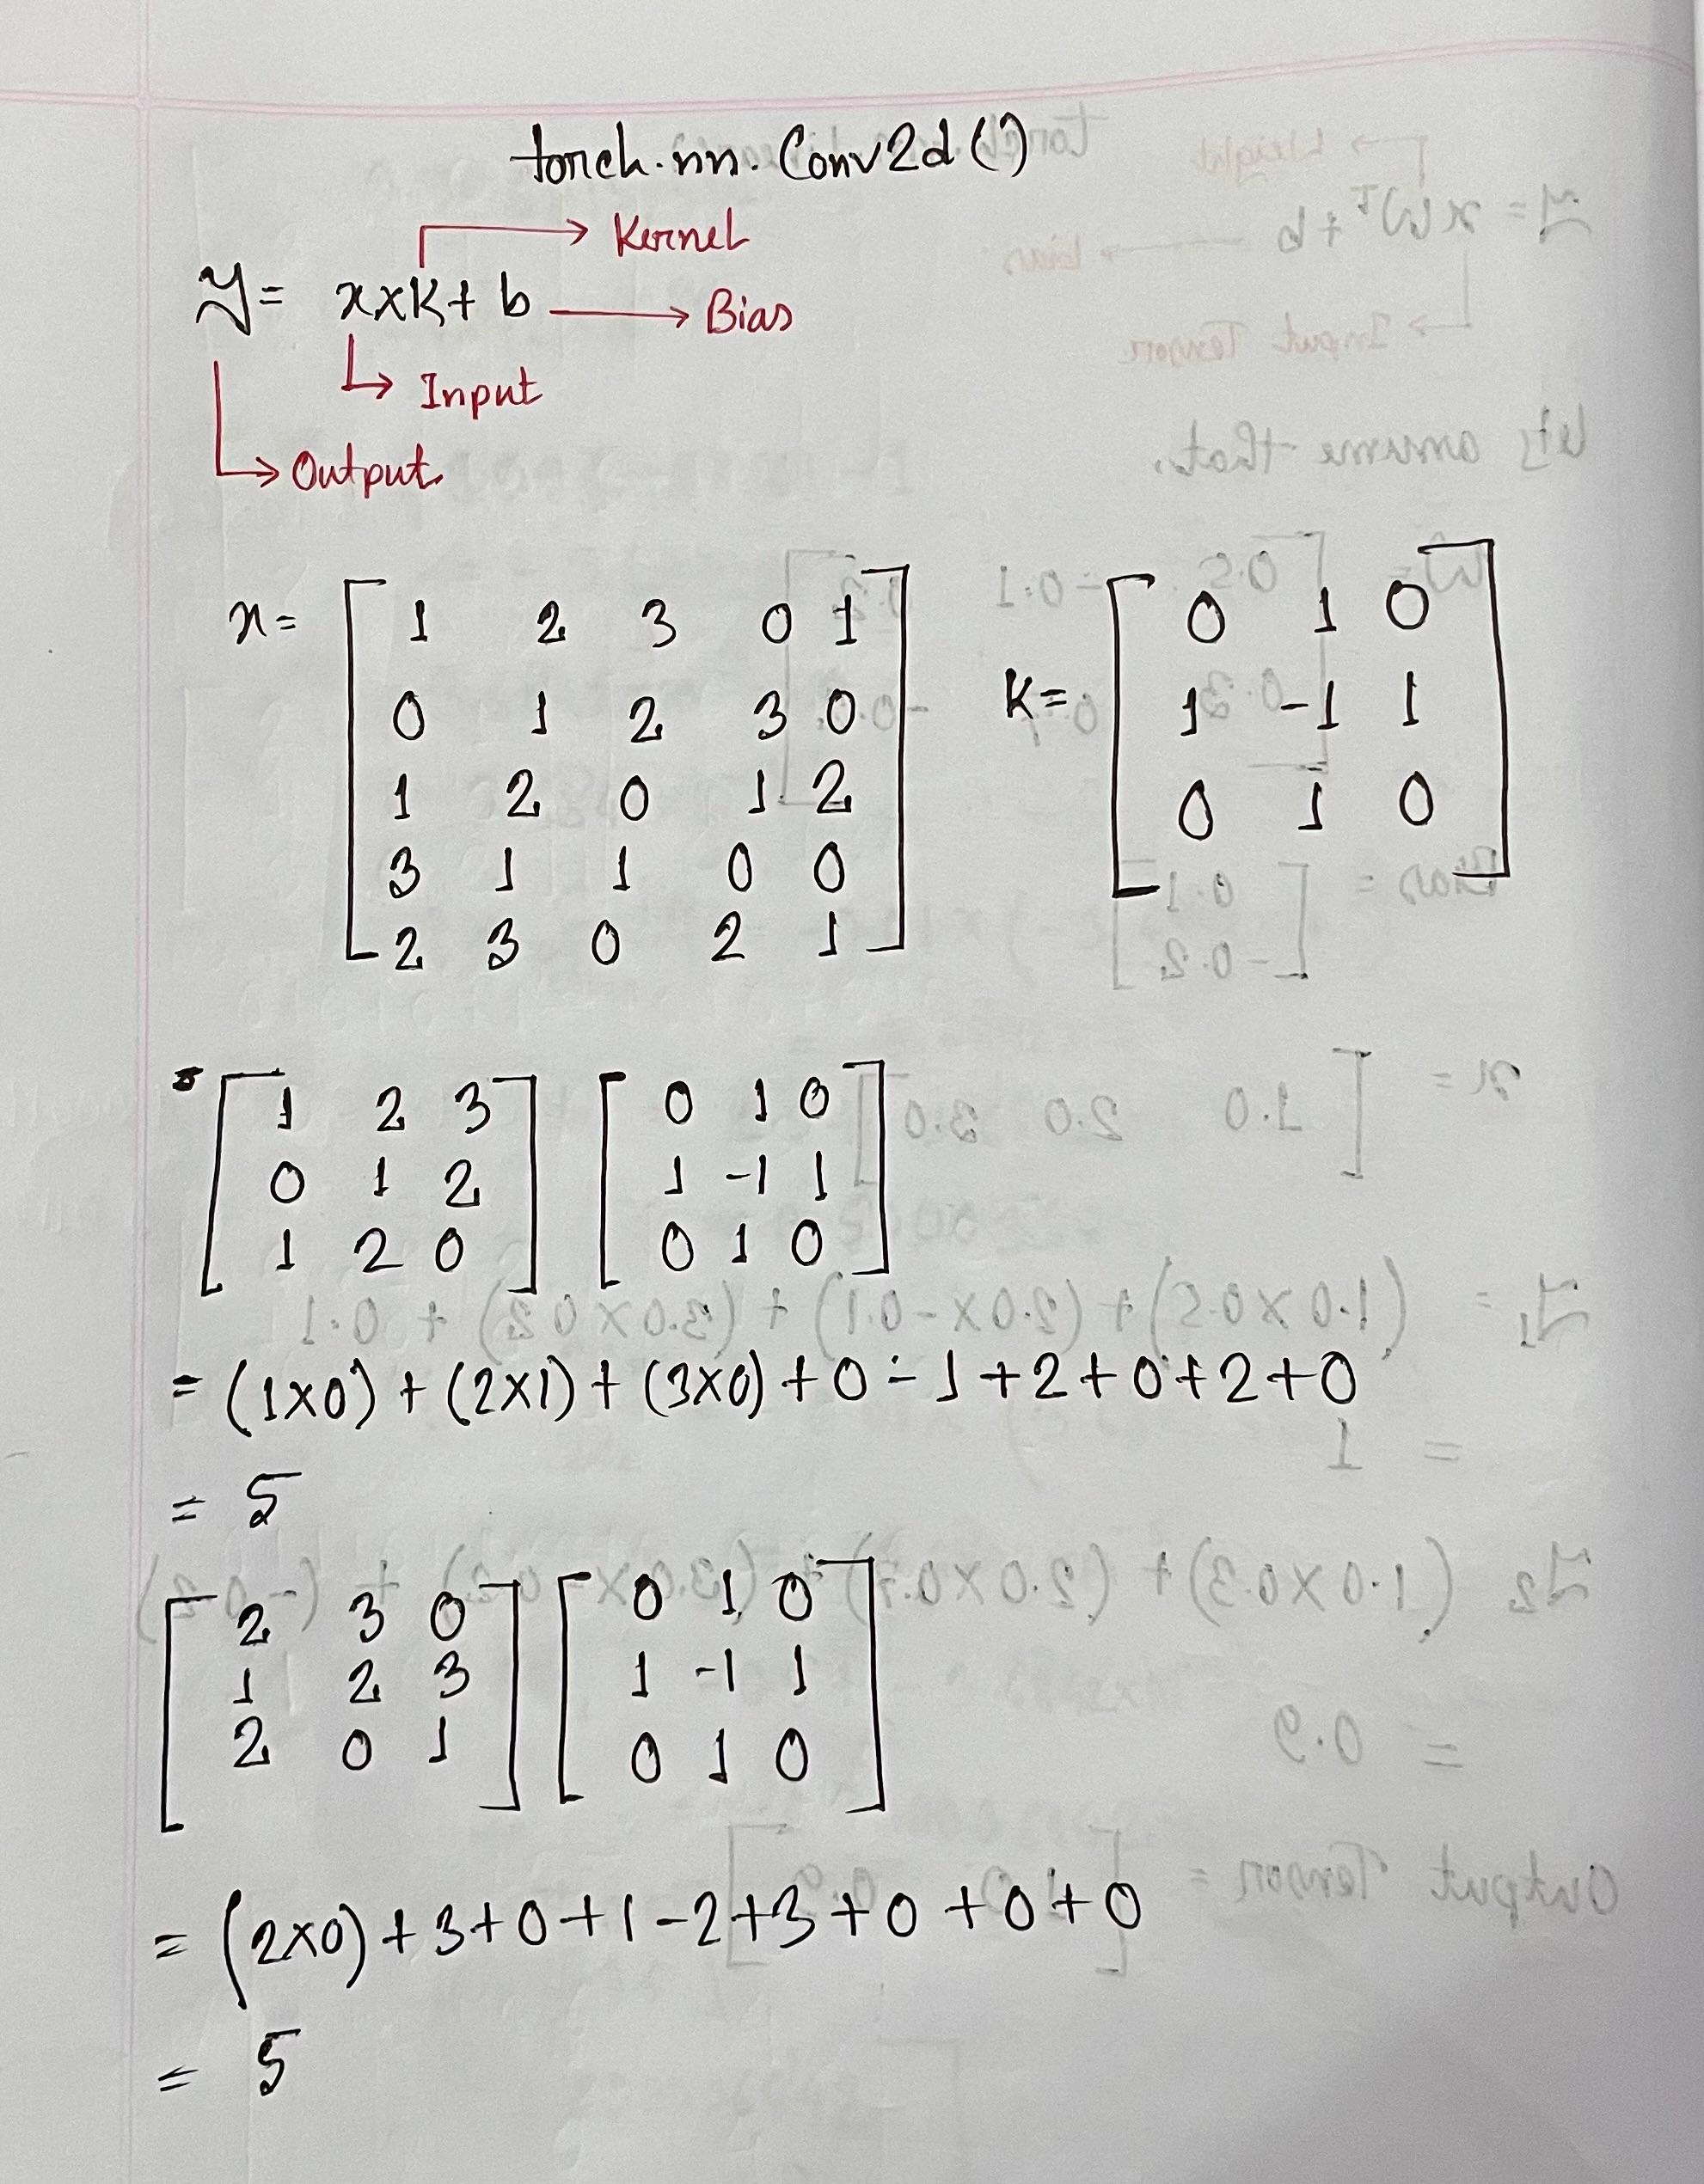 torch.nn.Conv2d()
Kernel
y = x×K + b
Bias
Input
Output
x = [ 1 2 3 0 1
0 1 2 3 0
1 2 0 1 2
3 1 1 0 0
2 3 0 2 1 ]
K = [ 0 1 0
1 -1 1
0 1 0 ]
[ 1 2 3
0 1 2
1 2 0 ]
[ 0 1 0
1 -1 1
0 1 0 ]
= (1×0) + (2×1) + (3×0) + 0 - 1 + 2 + 0 + 2 + 0
= 5
[ 2 3 0
1 2 3
2 0 1 ]
[ 0 1 0
1 -1 1
0 1 0 ]
= (2×0) + 3 + 0 + 1 - 2 + 3 + 0 + 0 + 0
= 5